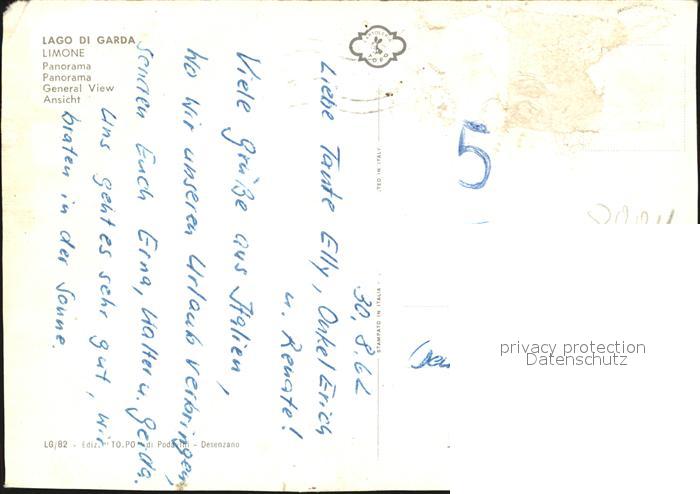 LAGO DI GARDA
LIMONE
Panorama
Panorama
General View
Ansicht
30.8.62
Liebe Tante Elly, Onkel Erich
u. Renate!
Viele Grüße aus Italien,
wo wir unseren Urlaub verbringen,
senden Euch Erna, Walter u. Gerda.
Uns geht es sehr gut, wir
braten in der Sonne.
STAMPATO IN ITALIA - 
TED IN ITALY
5
LG/82 - Ediz. TO.PO di - Desenzano
privacy protection
Datenschutz